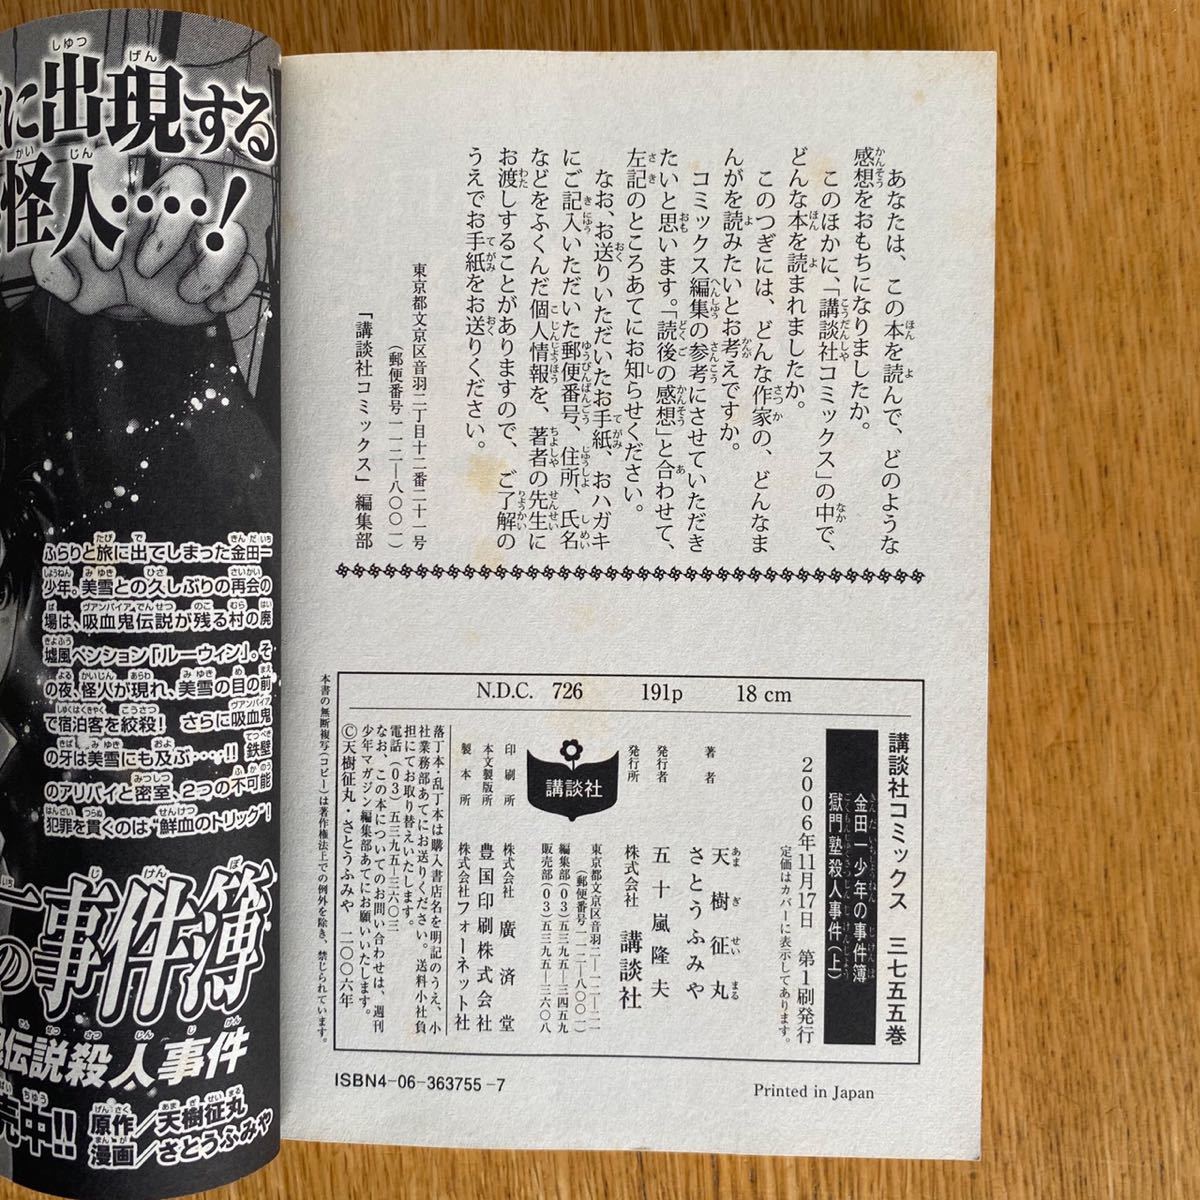 あなたは、この本を読んで、どのような
感想をおもちになりましたか。
このほかに、「講談社コミックス」の中で、
どんな本を読まれましたか。
このつぎには、どんな作家の、どんなま
んがを読みたいとお考えですか。
コミックス編集の参考にさせていただき
たいと思います。「読後の感想」と合わせて、
左記のところあてにお知らせください。
なお、お送りいただいたお手紙、おハガキ
にご記入いただいた郵便番号、住所、氏名
などをふくんだ個人情報を、著者の先生に
お渡しすることがありますので、ご了解の
うえでお手紙をお送りください。
東京都文京区音羽二丁目十二番二十一号
(郵便番号一一二―八〇〇一)
「講談社コミックス」編集部
N.D.C. 726 191p 18 cm
講談社コミックス 三七五五巻
金田一少年の事件簿
獄門塾殺人事件(上)
2006年11月17日 第1刷発行
定価はカバーに表示してあります。
著者 天樹征丸
さとうふみや
発行者 五十嵐隆夫
発行所 株式会社 講談社
東京都文京区音羽二―一二―二一
(郵便番号一一二―八〇〇一)
編集部(03)五三九五―三四五九
販売部(03)五三九五―三六〇八
講談社
印刷所 株式会社 廣済堂
本文製版所 豊国印刷株式会社
製本所 株式会社フォーネット社
落丁本・乱丁本は購入書店名を明記のうえ、小
社業務部あてにお送りください。送料小社負
担にてお取り替えいたします。
電話(03)五三九五―三六〇三
なお、この本についてのお問い合わせは、週刊
少年マガジン編集部あてにお願いいたします。
©天樹征丸・さとうふみや 二〇〇六年
本書の無断複写(コピー)は著作権法上での例外を除き、禁じられています。
ISBN4-06-363755-7
Printed in Japan
に出現する
怪人……!
ふらりと旅に出てしまった金田一
少年。美雪との久しぶりの再会の
場は、吸血鬼伝説が残る村の廃
墟風ペンション「ルーウィン」。そ
の夜、怪人が現れ、美雪の目の前
で宿泊客を絞殺! さらに吸血鬼
の牙は美雪にも及ぶ……!! 鉄壁
のアリバイと密室、2つの不可能
犯罪を貫くのは“鮮血のトリック”!
の事件簿
伝説殺人事件
売中!!
原作/天樹征丸
漫画/さとうふみや